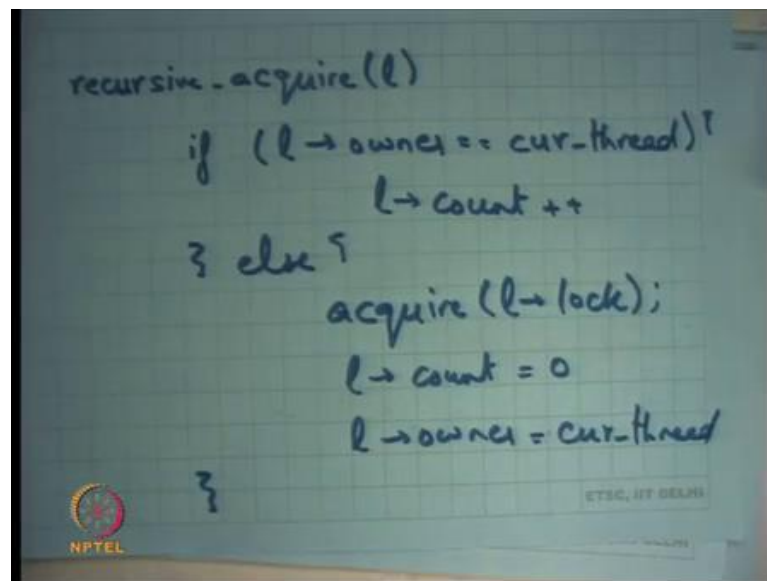 recursive-acquire(l)
if (l → owner == cur-thread) {
l → count ++
} else {
acquire (l → lock);
l → count = 0
l → owner = cur-thread
}
ETSC, IIT DELHI
NPTEL